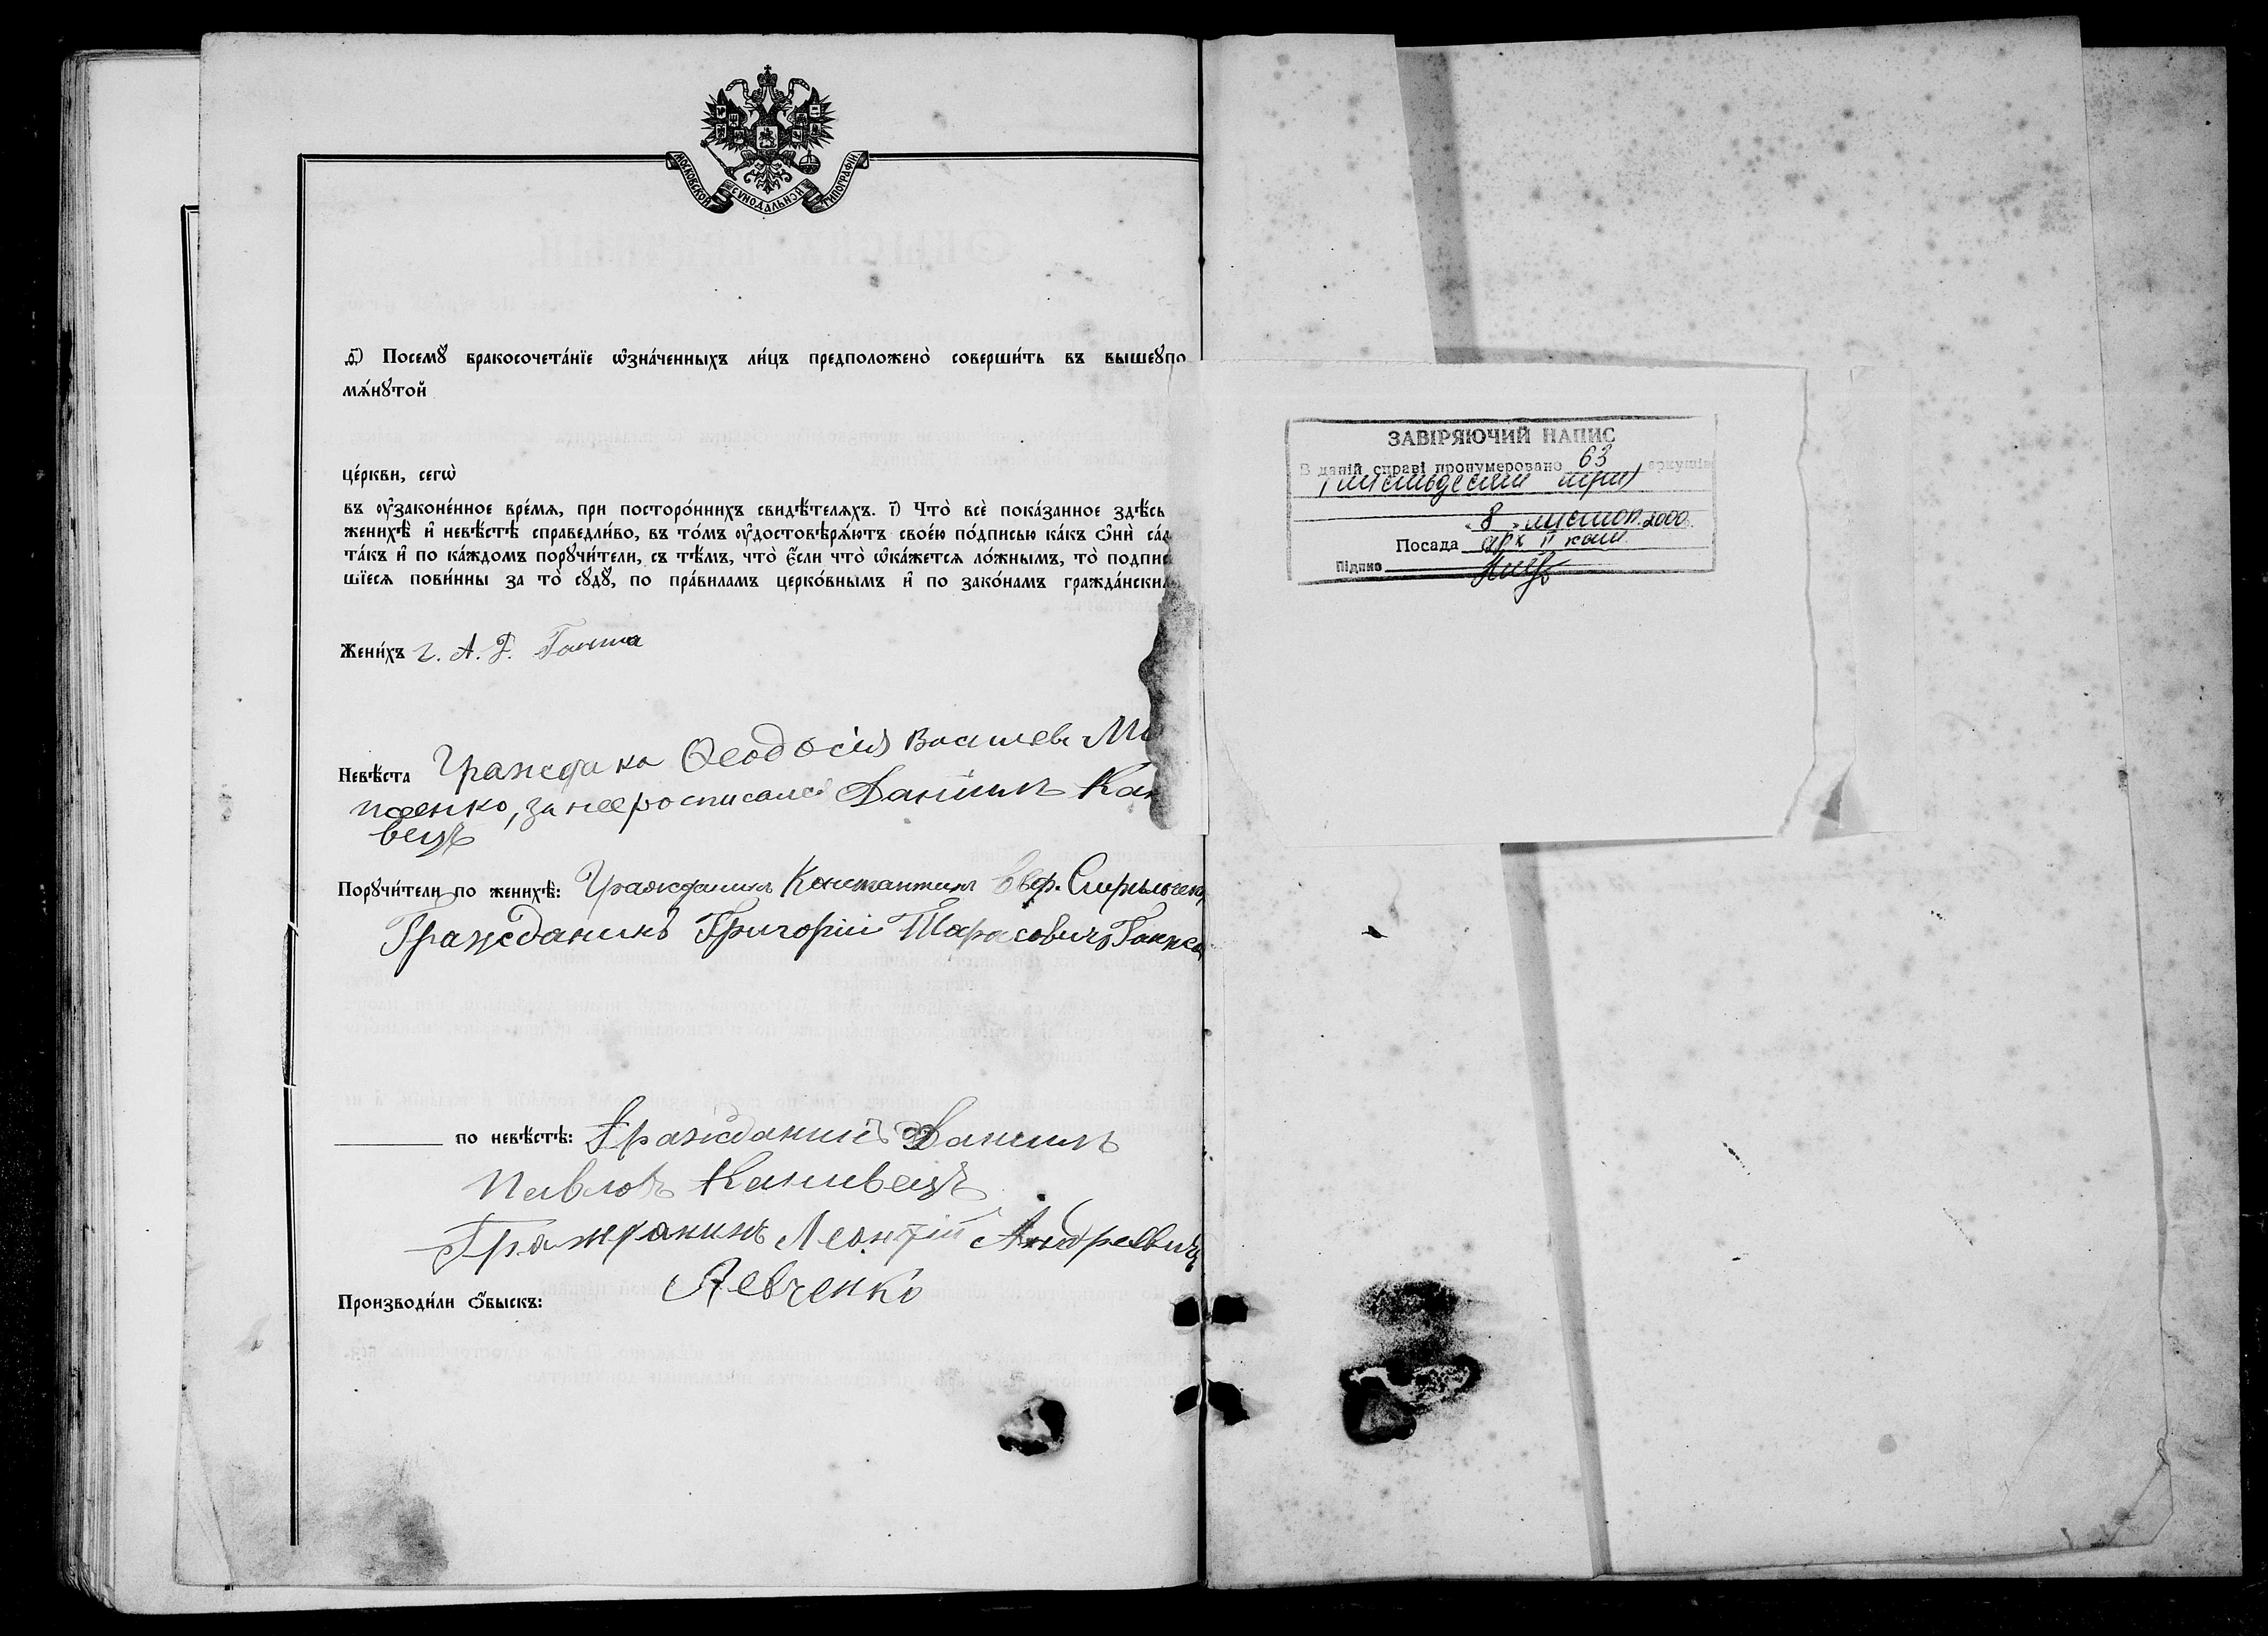 МОСКОВСКОЙ СѴНОДАЛЬНОЙ ТИПОГРАФІИ.
д҃) Посемꙋ̀ бракосочета́нїе ѡ҆зна́ченныхъ ли́цъ предположено̀ соверши́ть въ вышеꙋпо
мѧ́нꙋтой
це́ркви, сегѡ̀
въ ᲂу҆законе́нное вре́мѧ, при посторо́ннихъ свидѣ́телѧхъ. і҃) Что̀ всѐ пока́занное здѣ́сь
женихѣ̀ и҆ невѣ́стѣ справедли́во, въ то́мъ ᲂу҆достовѣрѧ́ютъ свое́ю по́дписью ка́къ ѻ҆нѝ са́
та́къ и҆ по ка́ждомъ порꙋчи́тели, съ тѣ́мъ, что̀ є҆́сли что̀ ѡ҆ка́жетсѧ ло́жнымъ, то̀ подпис
шїесѧ пови́нны за то̀ сꙋдꙋ̀, по пра́виламъ церко́внымъ и҆ по зако́намъ гражда́нски
Жени́хъ г. А. Ф.
Невѣ́ста Гражда ка Ѳеодосія Василев М
пченко, за нее росписался Даніилъ Кан
вецъ
Порꙋчи́тели по женихѣ̀: Гражданинъ Константин
Гражданинъ Григорій Тарасовичъ Ганжа
по невѣ́стѣ: Гражданинъ Даніилъ
Павловъ Канивецъ
Гражданинъ Леонтій Андреевичъ
Левченко
Производи́ли ѻ҆́быскъ:
ЗАВІРЯЮЧИЙ НАПИС
В даній справі пронумеровано 63 аркушів
(шістьдесят три)
« 8 » листоп. 2000.
Посада арх. II кат.
Підпис